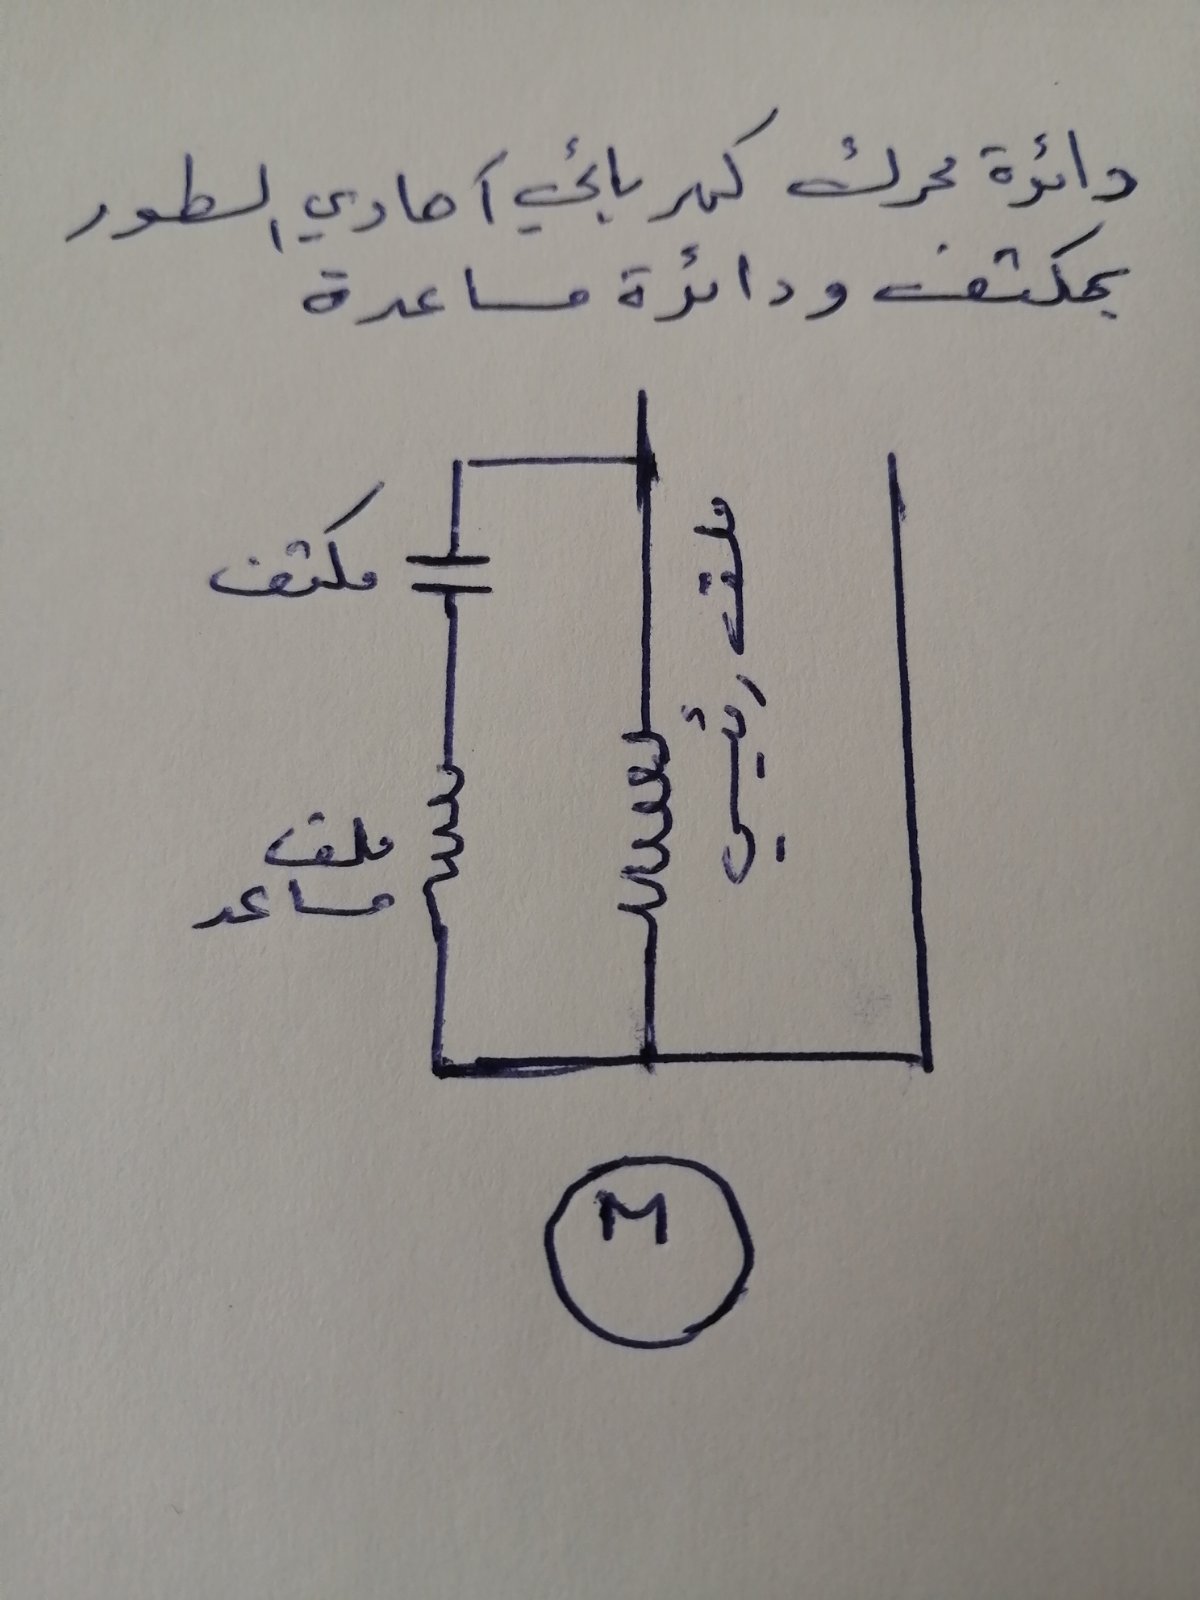 دائرة محرك كهربائي آحادي الطور
بمكثف ودائرة مساعدة
مكثف
ملف رئيسي
ملف
مساعد
M